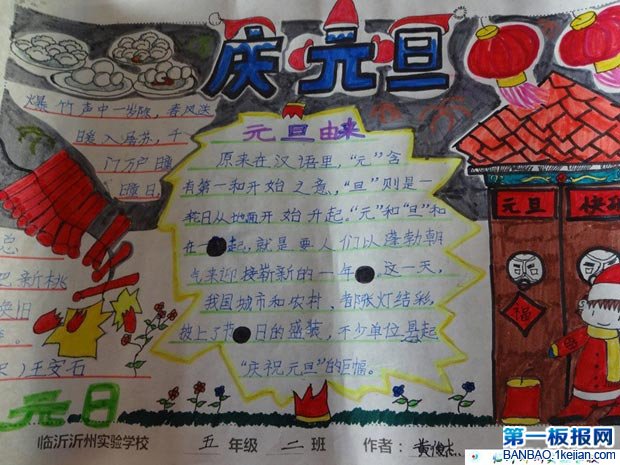 庆元旦
爆竹声中一岁除，春风送
暖入屠苏，千
门万户曈
曈日
总
把新桃
换旧
。
）王安石
元日
元旦由来
原来在汉语里，“元”含
有第一和开始之意，“旦”则是一
轮日从地面开始升起。“元”和“旦”和
在一起，就是要人们以蓬勃朝
气来迎接崭新的一年。这一天，
我国城市和农村，都张灯结彩，
披上了节日的盛装，不少单位悬起
“庆祝元旦”的巨幅。
元旦
快乐
福
临沂沂州实验学校 五年级 二班 作者：黄俊志
第一板报网
BANBAO.1kejian.com